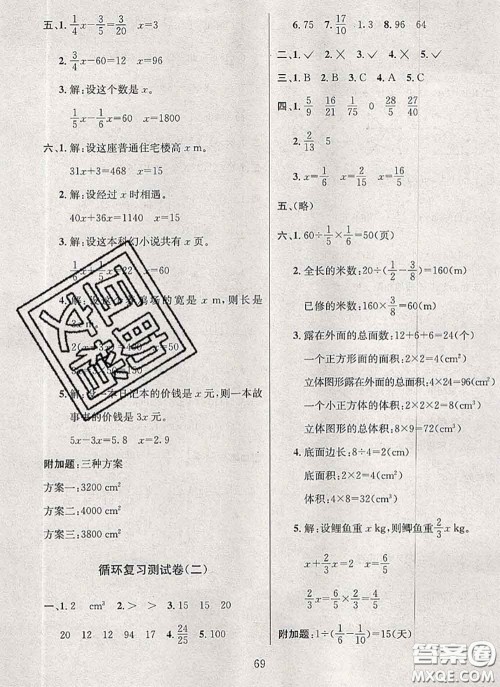 五、1. 1/4 x=3/5 3/20 x=3/5
2. 3/4 x-60=12 x=96
3. 解:设这个数是 x。
1/5 x-1/6 x=60 x=1800
六、1. 解:设这座普通住宅楼高 x m。
31x+3=468 x=15
2. 解:设经过 x 时相遇。
40x+36x=1140 x=15
3. 解:设这本科幻小说共有 x 页。
x=60
4. 解:设这个
场的宽是 x m,则长是
5.
日记本的价钱是 x 元,则一本故
事书的价钱是 3x 元。
5x-3x=5.8 x=2.9
附加题:三种方案
方案一:3200 cm²
方案二:4000 cm²
方案三:3800 cm²
循环复习测试卷(二)
一、1. 2 cm³ 2. > > 3. 15 15 20
20 12 94 12 4. 24/25 5. 100
6. 75% 7. 17/10 m³ 8. 96 64
二、1. ✓ 2. ✓ 3. ✓ 4. ✓
三、1. B 2. B 3. C 4. A 5. B
四、1. 5/9 16/21 0 28/5 27/40
2. 2/13 5
3. x=1/6 x=1/6 x=3/4
五、(略)
六、1. 60÷1/5×1/6=50(页)
2. 全长的米数:20÷(1/2-3/8)=160(m)
已修的米数:160×3/8=60(m)
3. 露在外面的总面数:12+6+6=24(个)
一个正方形面的面积:2×2=4(m²)
立体图形露在外面的总面积:4×24=96(m²)
一个小正方体的体积:2×2×2=8(m³)
立体图形的总体积:8×9=72(m³)
4. 底面边长:8÷4=2(dm)
底面面积:2×2=4(dm²)
体积:4×8=32(dm³)
5. 解:设鲤鱼重 x kg,则鲫鱼重 2/3 x kg。
x+2/3 x=2 x=6/5
2/3 x=2/3×6/5=4/5
附加题:1÷(1/6-1/10)=15(天)
69
答案圈
MXQE.COM